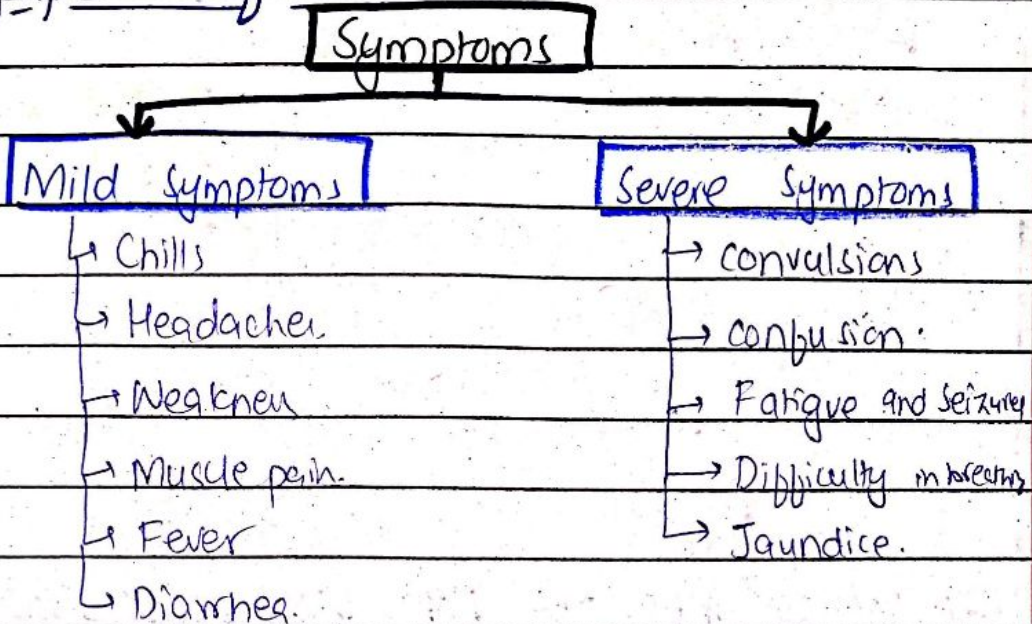 Symptoms
Mild Symptoms
Severe Symptoms
Chills
Headaches
Weakness
Muscle pain.
Fever
Diarrhea.
Convulsions
Confusion.
Fatigue and Seizures
Difficulty in breathing
Jaundice.